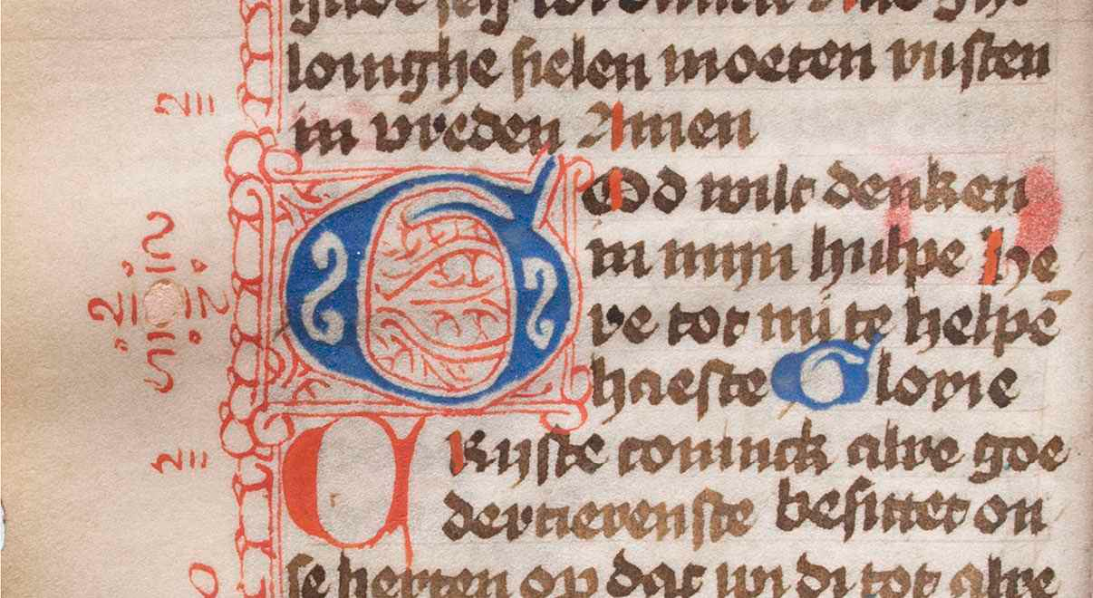 louighe sielen moeten rusten
in vreden Amen
GOd wilt denken
in mijn hulpe he
re tot mi te helpē
haeste Glorie
CRijste coninck alre goe
dertierenste besittet on
se herten op dat wi di tot alre